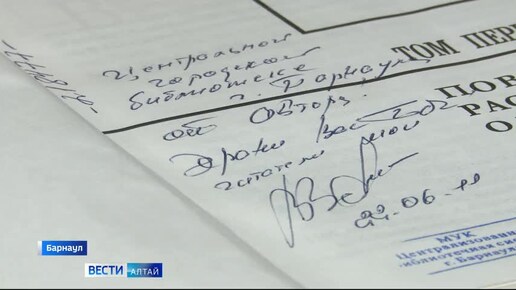 Центральной
городской
библиотеке
г. Барнаула
от автора!
читатели мои
22.06.11
ТОМ ПЕР
ПОВ
РАС
О
МУК
Централизованн
библиотечная сис
г. Барнаул
Барнаул
ВЕСТИ АЛТАЙ